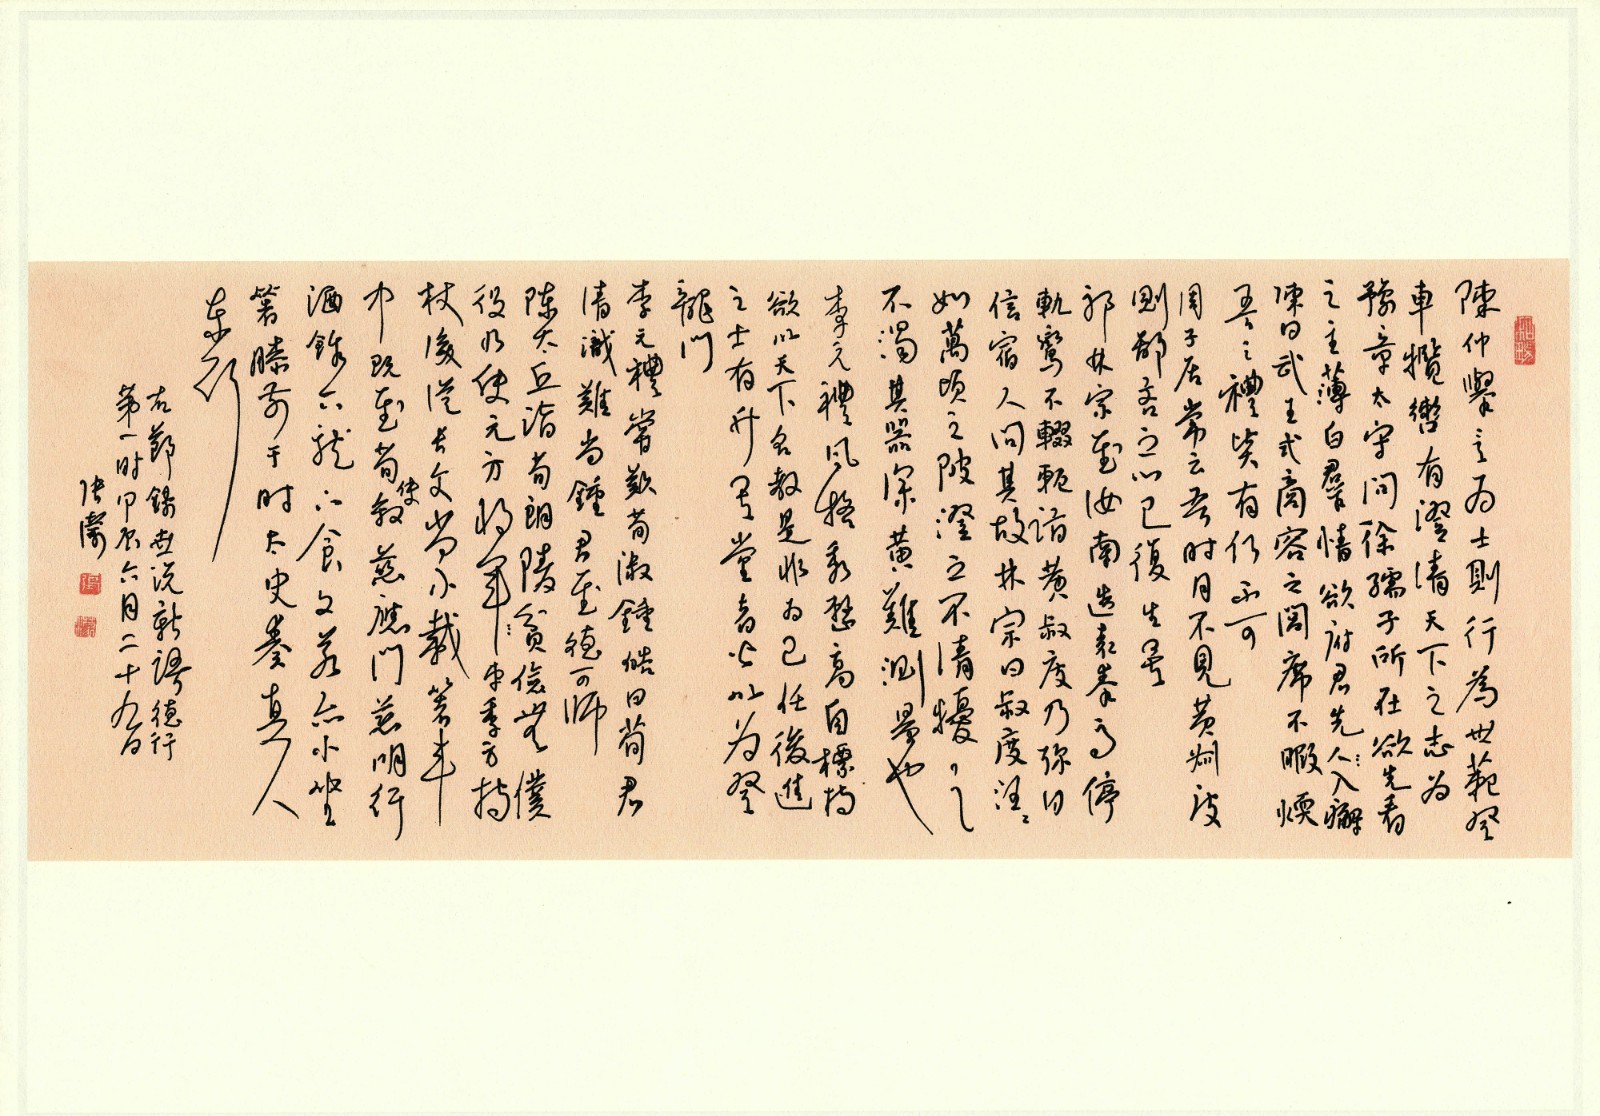 陳仲舉言為士則行為世範登
車攬轡有澄清天下之志為
豫章太守問徐孺子所在欲先看
之主薄白群情欲府君先入廨
陳曰武王式商容之閭席不暇煗
吾之禮賢有何不可
周子居常云吾时月不見黄叔度
則鄙吝之心已復生矣
郭林宗至汝南造袁奉高車不停
軌鸞不輟軛詣黄叔度乃弥日
信宿人問其故林宗曰叔度汪汪
如萬頃之陂澄之不清擾之
不濁其器深黄難測量也
李元禮風格秀整高自標持
欲以天下名教是非為己任後進
之士有升其堂者皆以為登
龍門
李元禮嘗歎荀淑鍾皓曰荀君
清識難尚鍾君至德可師
陳太丘詣荀朗陵貧儉無僕
役乃使元方將車季方持
杖後從長文尚小載箸車
中既至荀使叔慈應門慈明行
酒餘六龍下食文若亦小坐
箸膝前于时太史奏真人
東行
右節錄世说新語德行
第一时甲辰六月二十九日